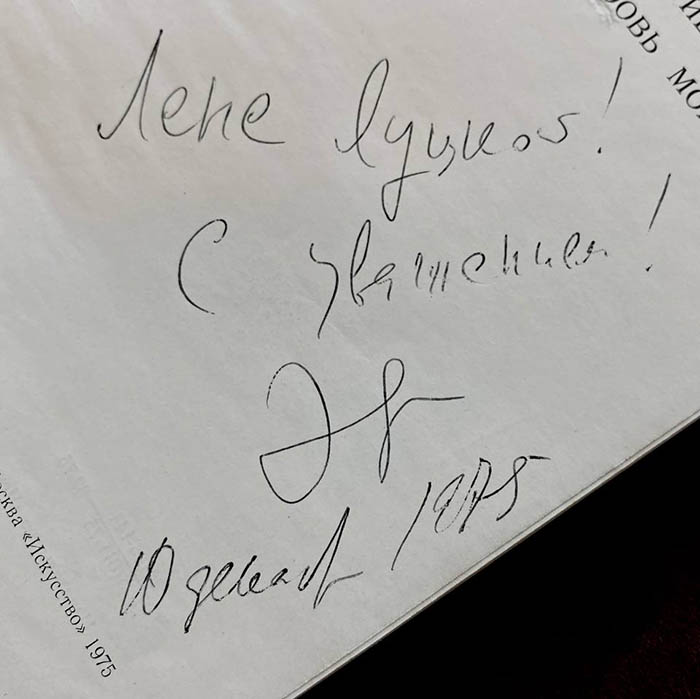 ОВЬ МО
Лене Луцкой!
С уважением!
10 декаб 1975
Москва «Искусство» 1975